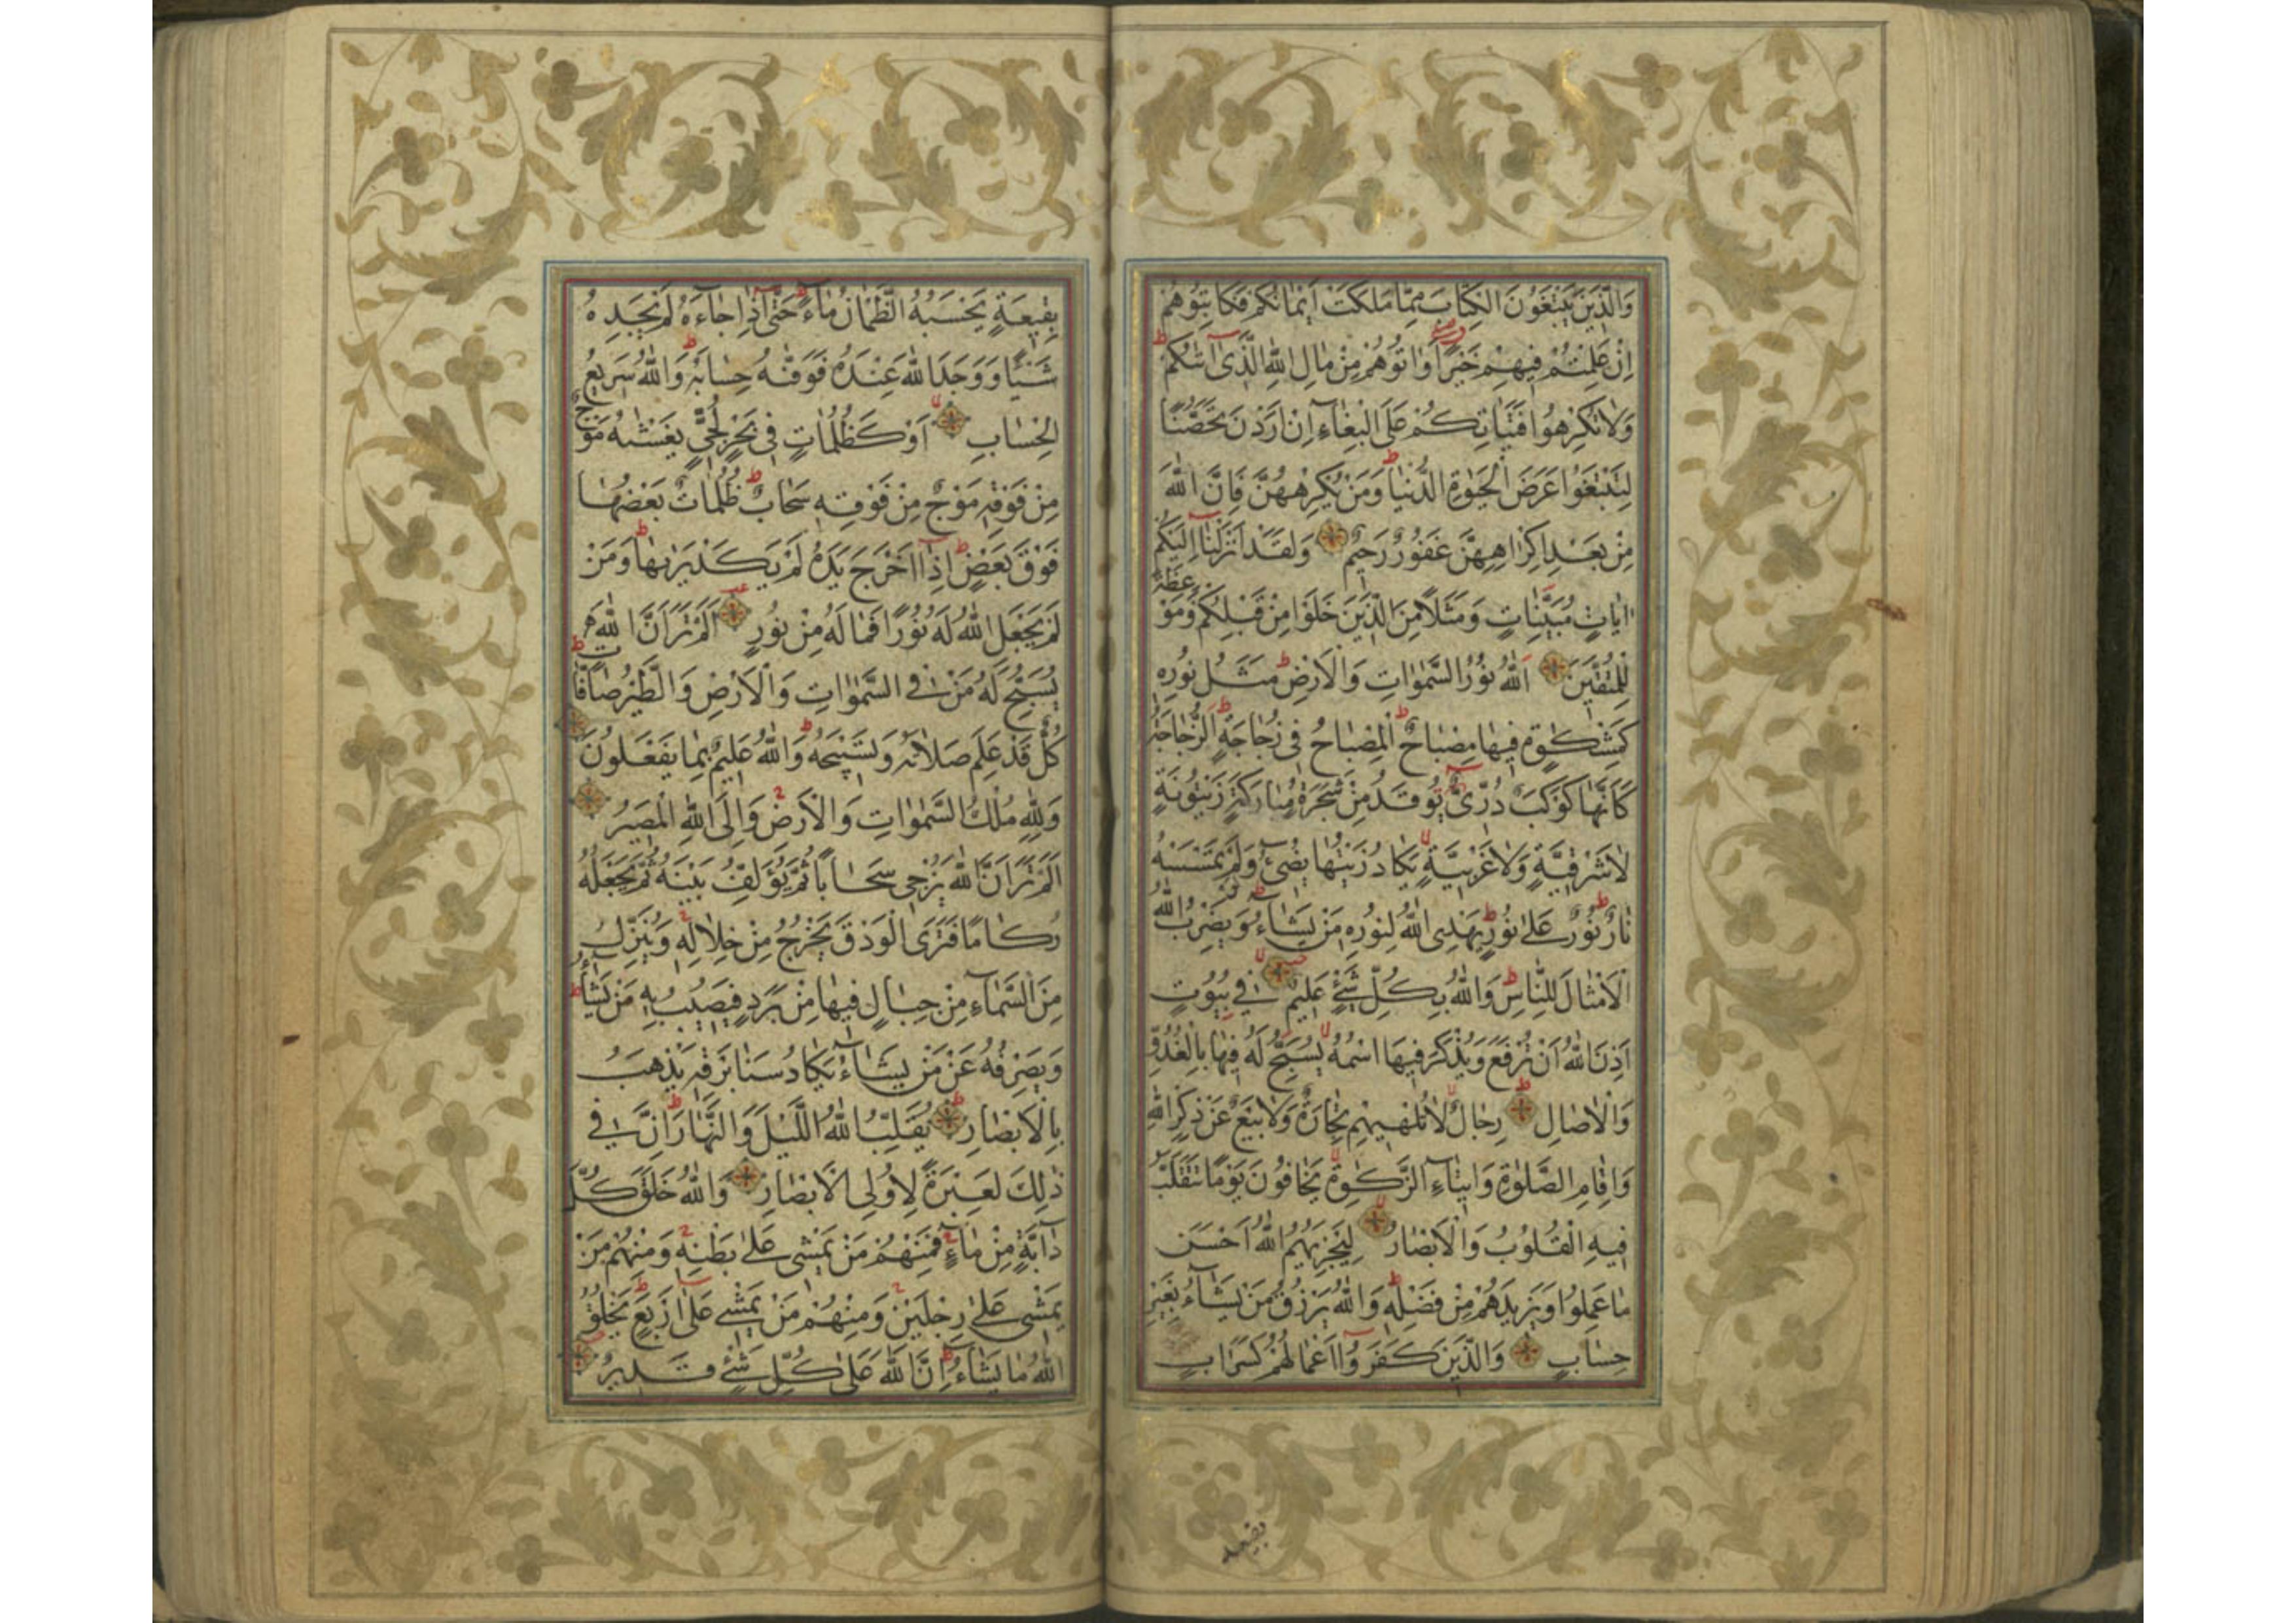 وَالَّذِينَ يَبْتَغُونَ الْكِتَابَ مِمَّا مَلَكَتْ اَيْمَانُكُمْ فَكَاتِبُوهُمْ
اِنْ عَلِمْتُمْ فِيهِمْ خَيْرًا وَاٰتُوهُمْ مِنْ مَالِ اللّٰهِ الَّذِى اٰتٰيكُمْ
وَلَا تُكْرِهُوا فَتَيَاتِكُمْ عَلَى الْبِغَاءِ اِنْ اَرَدْنَ تَحَصُّنًا
لِتَبْتَغُوا عَرَضَ الْحَيٰوةِ الدُّنْيَا وَمَنْ يُكْرِهْهُنَّ فَاِنَّ اللّٰهَ
مِنْ بَعْدِ اِكْرَاهِهِنَّ غَفُورٌ رَحِيمٌ وَلَقَدْ اَنْزَلْنَا اِلَيْكُمْ
اٰيَاتٍ مُبَيِّنَاتٍ وَمَثَلًا مِنَ الَّذِينَ خَلَوْا مِنْ قَبْلِكُمْ وَمَوْعِظَةً
لِلْمُتَّقِينَ اَللّٰهُ نُورُ السَّمٰوَاتِ وَالْاَرْضِ مَثَلُ نُورِهِ
كَمِشْكٰوةٍ فِيهَا مِصْبَاحٌ اَلْمِصْبَاحُ فِى زُجَاجَةٍ اَلزُّجَاجَةُ
كَاَنَّهَا كَوْكَبٌ دُرِّىٌّ يُوقَدُ مِنْ شَجَرَةٍ مُبَارَكَةٍ زَيْتُونَةٍ
لَا شَرْقِيَّةٍ وَلَا غَرْبِيَّةٍ يَكَادُ زَيْتُهَا يُضِىءُ وَلَوْ لَمْ تَمْسَسْهُ
نَارٌ نُورٌ عَلٰى نُورٍ يَهْدِى اللّٰهُ لِنُورِهِ مَنْ يَشَاءُ وَيَضْرِبُ اللّٰهُ
الْاَمْثَالَ لِلنَّاسِ وَاللّٰهُ بِكُلِّ شَىْءٍ عَلِيمٌ فِى بُيُوتٍ
اَذِنَ اللّٰهُ اَنْ تُرْفَعَ وَيُذْكَرَ فِيهَا اسْمُهُ يُسَبِّحُ لَهُ فِيهَا بِالْغُدُوِّ
وَالْاٰصَالِ رِجَالٌ لَا تُلْهِيهِمْ تِجَارَةٌ وَلَا بَيْعٌ عَنْ ذِكْرِ اللّٰهِ
وَاِقَامِ الصَّلٰوةِ وَاِيتَاءِ الزَّكٰوةِ يَخَافُونَ يَوْمًا تَتَقَلَّبُ
فِيهِ الْقُلُوبُ وَالْاَبْصَارُ لِيَجْزِيَهُمُ اللّٰهُ اَحْسَنَ
مَا عَمِلُوا وَيَزِيدَهُمْ مِنْ فَضْلِهِ وَاللّٰهُ يَرْزُقُ مَنْ يَشَاءُ بِغَيْرِ
حِسَابٍ وَالَّذِينَ كَفَرُوا اَعْمَالُهُمْ كَسَرَابٍ
بقيعة
بِقِيعَةٍ يَحْسَبُهُ الظَّمْاٰنُ مَاءً حَتّٰى اِذَا جَاءَهُ لَمْ يَجِدْهُ
شَيْئًا وَوَجَدَ اللّٰهَ عِنْدَهُ فَوَفّٰيهُ حِسَابَهُ وَاللّٰهُ سَرِيعُ
الْحِسَابِ اَوْ كَظُلُمَاتٍ فِى بَحْرٍ لُجِّىٍّ يَغْشٰيهُ مَوْجٌ
مِنْ فَوْقِهِ مَوْجٌ مِنْ فَوْقِهِ سَحَابٌ ظُلُمَاتٌ بَعْضُهَا
فَوْقَ بَعْضٍ اِذَا اَخْرَجَ يَدَهُ لَمْ يَكَدْ يَرٰيهَا وَمَنْ
لَمْ يَجْعَلِ اللّٰهُ لَهُ نُورًا فَمَا لَهُ مِنْ نُورٍ اَلَمْ تَرَ اَنَّ اللّٰهَ
يُسَبِّحُ لَهُ مَنْ فِى السَّمٰوَاتِ وَالْاَرْضِ وَالطَّيْرُ صَافَّاتٍ
كُلٌّ قَدْ عَلِمَ صَلَاتَهُ وَتَسْبِيحَهُ وَاللّٰهُ عَلِيمٌ بِمَا يَفْعَلُونَ
وَلِلّٰهِ مُلْكُ السَّمٰوَاتِ وَالْاَرْضِ وَاِلَى اللّٰهِ الْمَصِيرُ
اَلَمْ تَرَ اَنَّ اللّٰهَ يُزْجِى سَحَابًا ثُمَّ يُؤَلِّفُ بَيْنَهُ ثُمَّ يَجْعَلُهُ
رُكَامًا فَتَرَى الْوَدْقَ يَخْرُجُ مِنْ خِلَالِهِ وَيُنَزِّلُ
مِنَ السَّمَاءِ مِنْ جِبَالٍ فِيهَا مِنْ بَرَدٍ فَيُصِيبُ بِهِ مَنْ يَشَاءُ
وَيَصْرِفُهُ عَنْ مَنْ يَشَاءُ يَكَادُ سَنَا بَرْقِهِ يَذْهَبُ
بِالْاَبْصَارِ يُقَلِّبُ اللّٰهُ اللَّيْلَ وَالنَّهَارَ اِنَّ فِى
ذٰلِكَ لَعِبْرَةً لِاُولِى الْاَبْصَارِ وَاللّٰهُ خَلَقَ كُلَّ
دَابَّةٍ مِنْ مَاءٍ فَمِنْهُمْ مَنْ يَمْشِى عَلٰى بَطْنِهِ وَمِنْهُمْ مَنْ
يَمْشِى عَلٰى رِجْلَيْنِ وَمِنْهُمْ مَنْ يَمْشِى عَلٰى اَرْبَعٍ يَخْلُقُ
اللّٰهُ مَا يَشَاءُ اِنَّ اللّٰهَ عَلٰى كُلِّ شَىْءٍ قَدِيرٌ